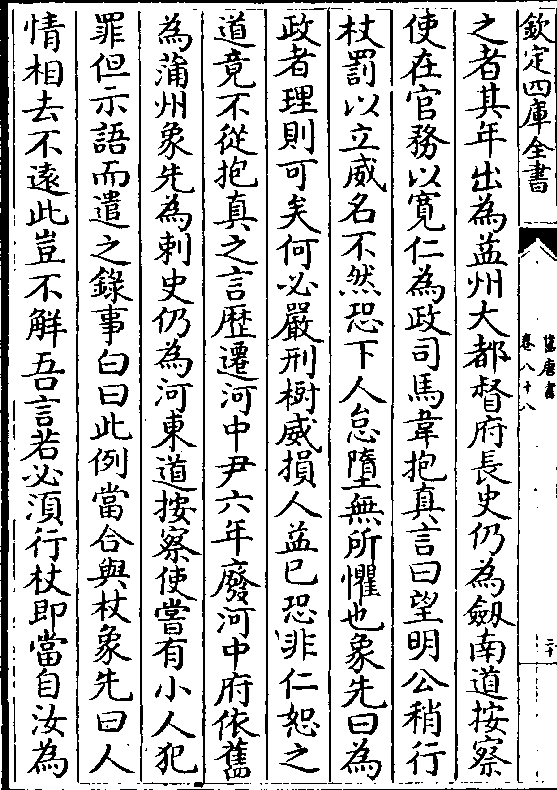 欽定四庫全書
舊唐書
卷八十八
二十
之者其年出為益州大都督府長史仍為劔南道按察
使在官務以寛仁為政司馬韋抱真言曰望明公稍行
杖罰以立威名不然恐下人怠墮無所懼也象先曰為
政者理則可矣何必嚴刑樹威損人益已恐非仁恕之
道竟不從抱真之言歴遷河中尹六年廢河中府依舊
為蒲州象先為刺史仍為河東道按察使嘗有小人犯
罪但示語而遣之錄事白曰此例當合與杖象先曰人
情相去不遠此豈不解吾言若必須行杖即當自汝為